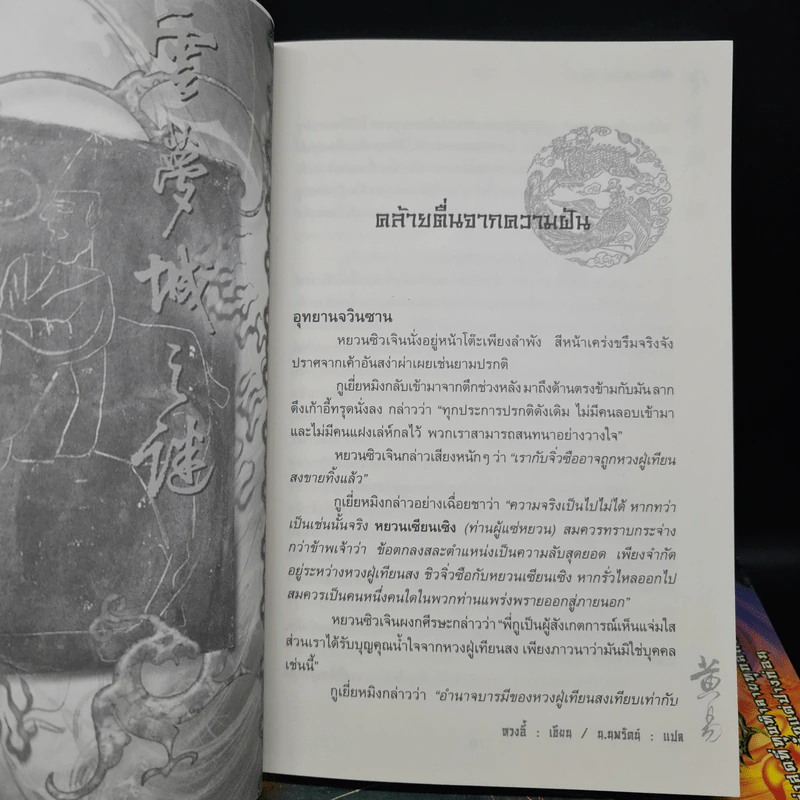 雲夢城之謎
คล้ายตื่นจากความฝัน
อุทยานจวินซาน
หยวนซิวเจินนั่งอยู่หน้าโต๊ะเพียงลำพัง สีหน้าเคร่งขรึมจริงจัง
ปราศจากเค้าอันสง่าผ่าเผยเช่นยามปรกติ
กูเยี่ยหมิงกลับเข้ามาจากตึกช่วงหลัง มาถึงด้านตรงข้ามกับมัน ลาก
ดึงเก้าอี้ทรุดนั่งลง กล่าวว่า “ทุกประการปรกติดังเดิม ไม่มีคนลอบเข้ามา
และไม่มีคนแฝงเล่ห์กลไว้ พวกเราสามารถสนทนาอย่างวางใจ”
หยวนซิวเจินกล่าวเสียงหนักๆ ว่า “เรากับจิ่วซืออาจถูกหวงฝู่เทียน
สงขายทิ้งแล้ว”
กูเยี่ยหมิงกล่าวอย่างเฉื่อยชาว่า “ความจริงเป็นไปไม่ได้ หากทว่า
เป็นเช่นนั้นจริง หยวนเซียนเซิง (ท่านผู้แซ่หยวน) สมควรทราบกระจ่าง
กว่าข้าพเจ้าว่า ข้อตกลงสละตำแหน่งเป็นความลับสุดยอด เพียงจำกัด
อยู่ระหว่างหวงฝู่เทียนสง ชิวจิ่วซือกับหยวนเซียนเซิง หากรั่วไหลออกไป
สมควรเป็นคนหนึ่งคนใดในพวกท่านแพร่งพรายออกสู่ภายนอก”
หยวนซิวเจินผงกศีรษะกล่าวว่า “พี่กูเป็นผู้สังเกตการณ์เห็นแจ่มใส
ส่วนเราได้รับบุญคุณน้ำใจจากหวงฝู่เทียนสง เพียงภาวนาว่ามันมิใช่บุคคล
เช่นนี้”
กูเยี่ยหมิงกล่าวว่า “อำนาจบารมีของหวงฝู่เทียนสงเทียบเท่ากับ
หวงอี้ : เขียน / น.นพรัตน์ : แปล
黄易